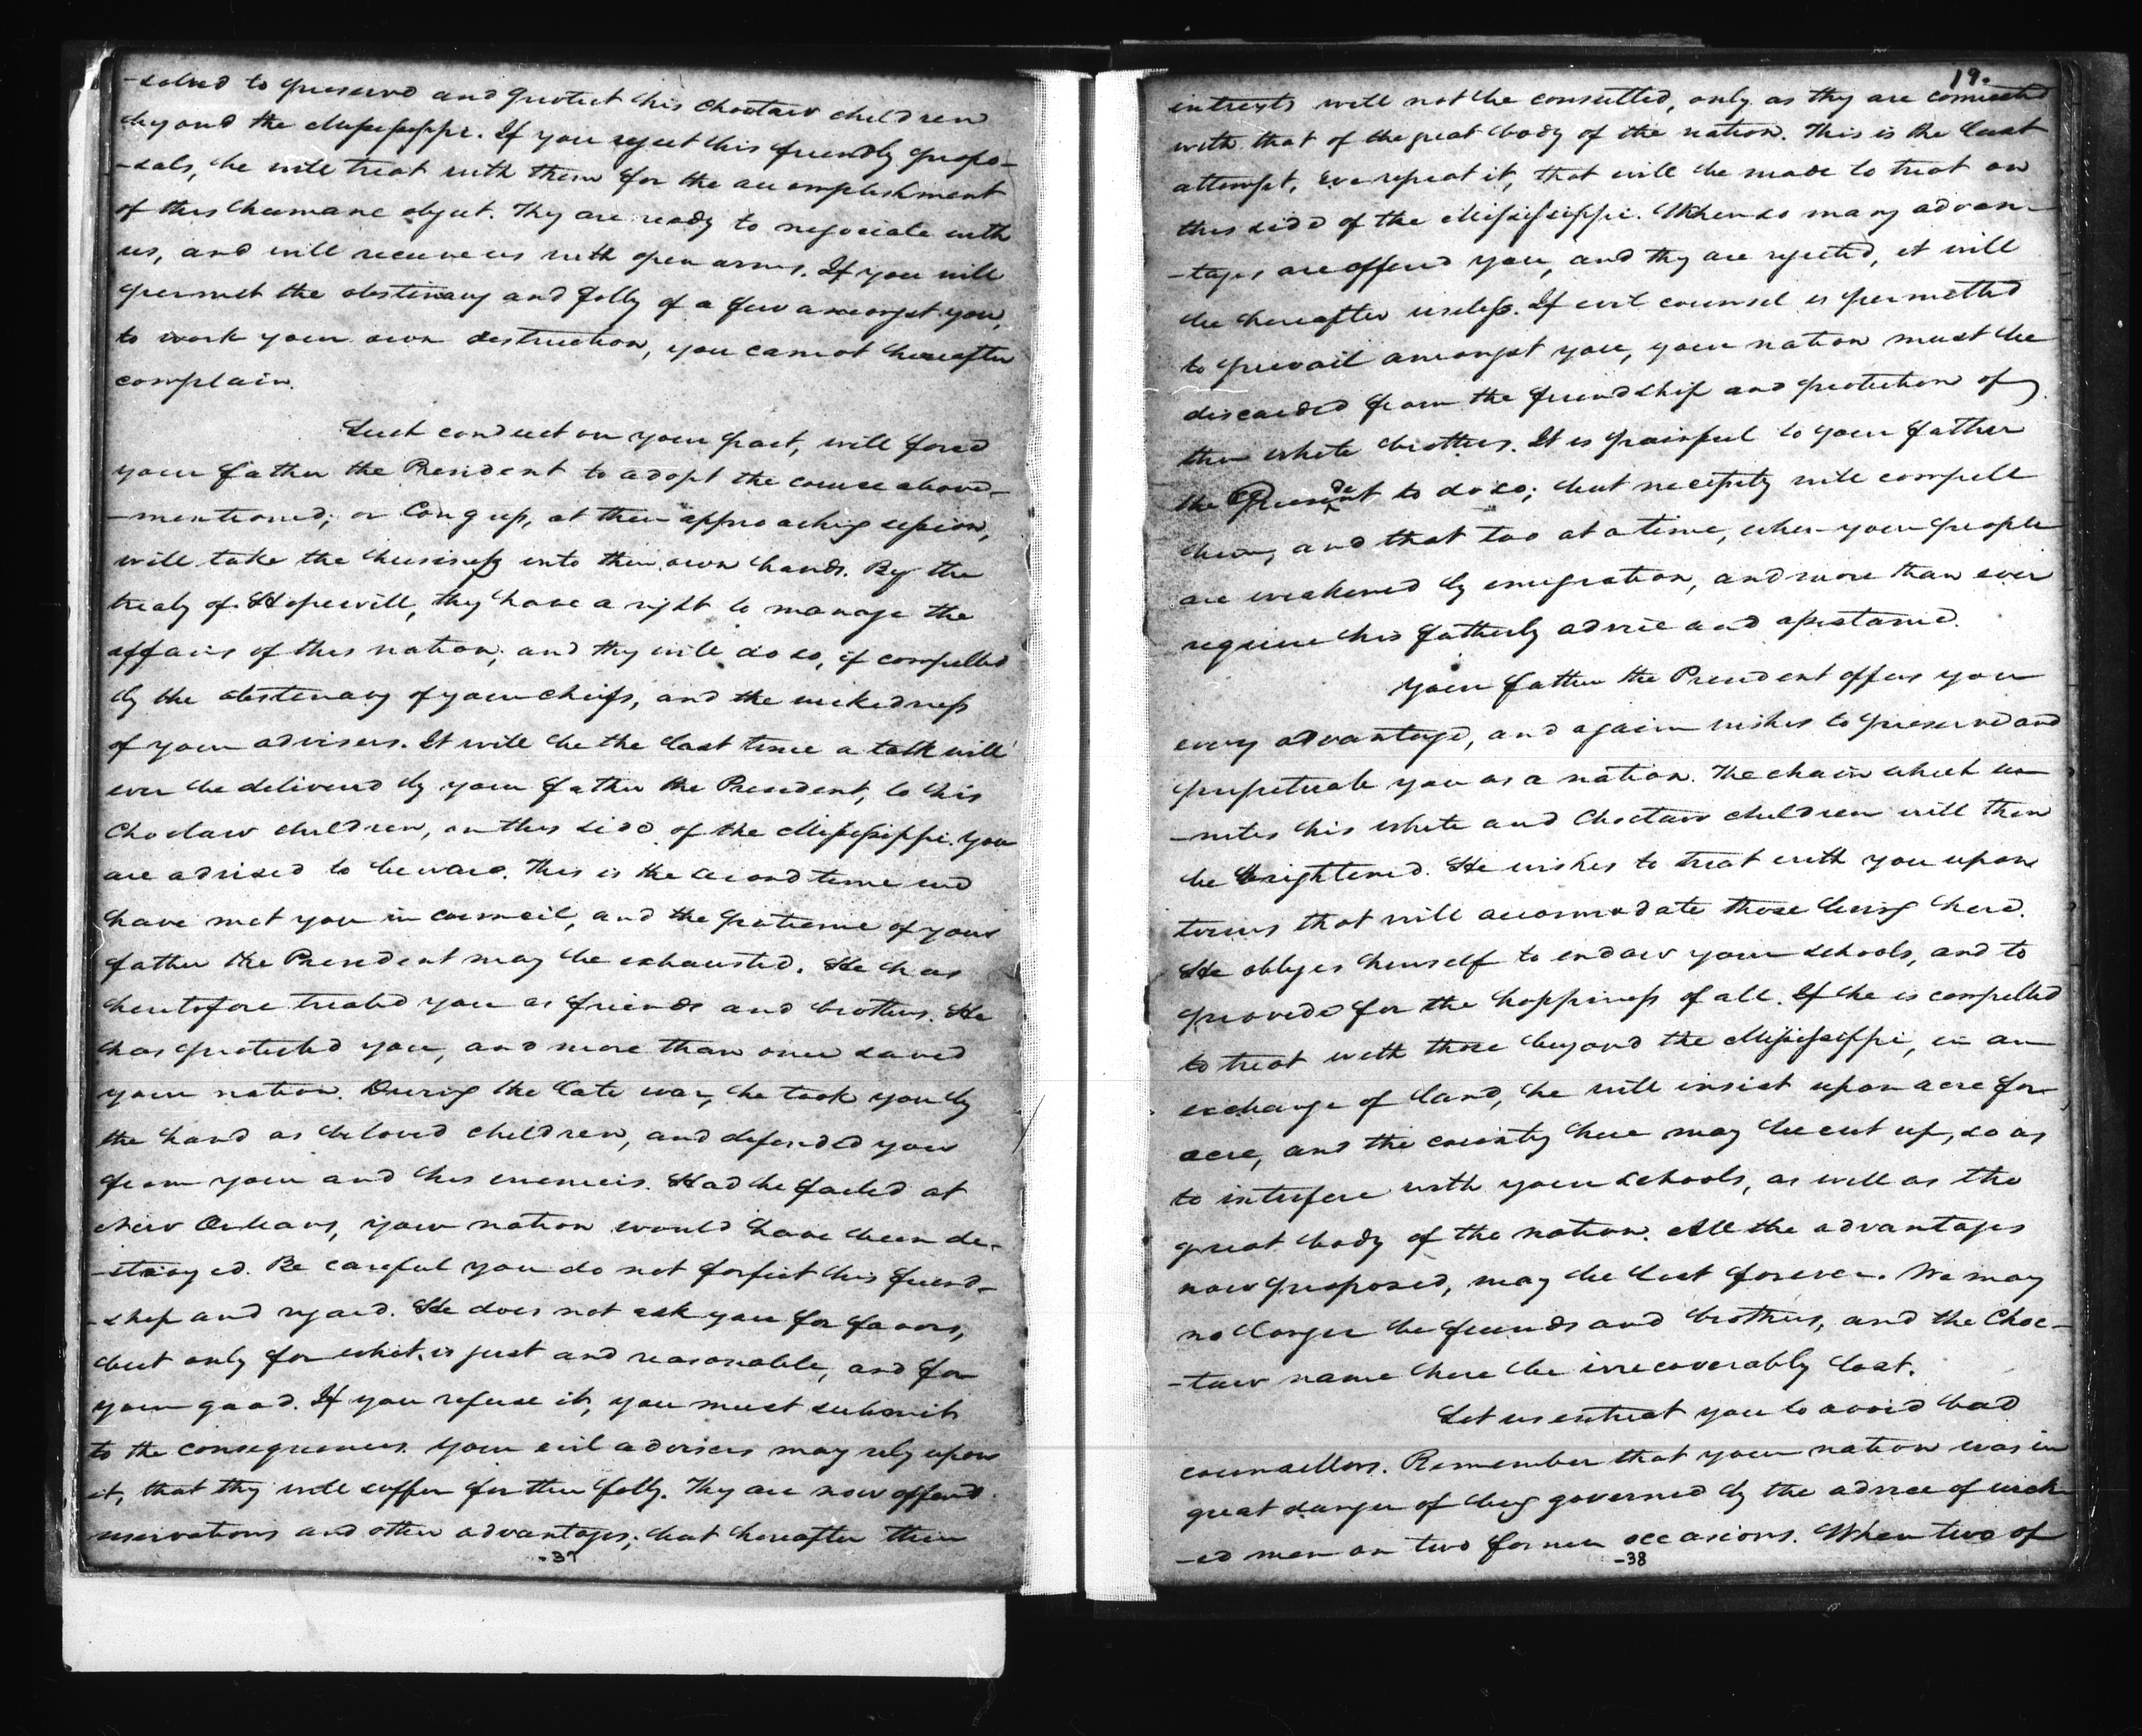 -solved to preserve and protect his Choctaw children
beyond the Mississippi. If you reject this friendly propo-
-sals, he will treat with them for the accomplishment
of this humane object. They are ready to negociate with
us, and will receive us with open arms. If you will
permit the obstinacy and folly of a few amongst you,
to work your own destruction, you cannot hereafter
complain.
Such conduct on your part, will force
your father the President to adopt the course above-
-mentioned; or Congress, at their approaching session,
will take the business into their own hands. By the
treaty of Hopewell, they have a right to manage the
affairs of this nation; and they will do so, if compelled
by the obstinacy of your chiefs, and the wickedness
of your advisers. It will be the last time a talk will
ever be delivered by your father the President, to his
Choctaw children, on this side of the Mississippi. You
are advised to beware. This is the second time we
have met you in council, and the patience of your
father the President may be exhausted. He has
heretofore treated you as friends and brothers. He
has protected you, and more than once saved
your nation. During the late war, he took you by
the hand as beloved children, and defended you
from your and his enemies. Had he failed at
New Orleans, your nation would have been de-
-stroyed. Be careful you do not forfeit his friend-
-ship and regard. He does not ask you for favors,
but only for what is just and reasonable, and for
your good. If you refuse it, you must submit
to the consequences. Your evil advisers may rely upon
it, that they will suffer for their folly. They are now offered
reservations and other advantages; but hereafter their
-37
19.
interests will not be consulted, only as they are connected
with that of the great body of the nation. This is the last
attempt, we repeat it, that will be made to treat on
this side of the Mississippi. When so many advan-
-tages are offered you, and they are rejected, it will
be hereafter useless. If evil counsel is permitted
to prevail amongst you, your nation must be
discarded from the friendship and protection of
their white brothers. It is painful to your father
the President to do so; but necessity will compell
him, and that too at a time, when your people
are weakened by emigration, and more than ever
require his fatherly advice and assistance.
Your father the President offers you
every advantage, and again wishes to preserve and
perpetuate you as a nation. The chain which u-
-nites his white and Choctaw children will then
be brightened. He wishes to treat with you upon
terms that will accommodate those living here.
He obliges himself to endow your schools, and to
provide for the happiness of all. If he is compelled
to treat with those beyond the Mississippi, in an
exchange of land, he will insist upon acre for
acre, and the country here may be cut up, so as
to interfere with your schools, as well as the
great body of the nation. All the advantages
now proposed, may be lost forever. We may
no longer be friends and brothers, and the Choc-
-taw name here be irrecoverably lost.
Let us entreat you to avoid bad
counsellors. Remember that your nation was in
great danger of being governed by the advice of wick-
-ed men on two former occasions. When two of
-38